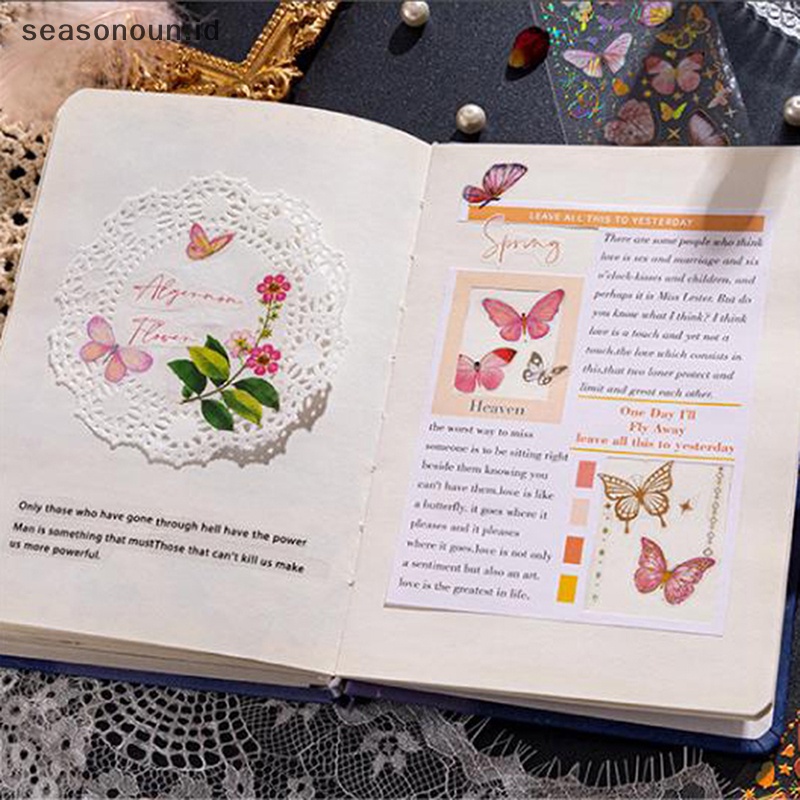 seasonoun.id
Algernon
Flower
Only those who have gone through hell have the power
Man is something that mustThose that can't kill us make
us more powerful.
LEAVE ALL THIS TO YESTERDAY
Spring
There are some people who think
love is sex and marriage and six
o'clock-kisses and children, and
perhaps it is Miss Lester. But do
you know what I think? I think
love is a touch and yet not a
touch.the love which consists in
this,that two loner protect and
limit and great each other.
Heaven
the worst way to miss
someone is to be sitting right
beside them knowing you
can't have them.love is like
a butterfly. it goes where it
pleases and it pleases
where it goes.love is not only
a sentiment but also an art.
love is the greatest in life.
One Day I'll
Fly Away
leave all this to yesterday